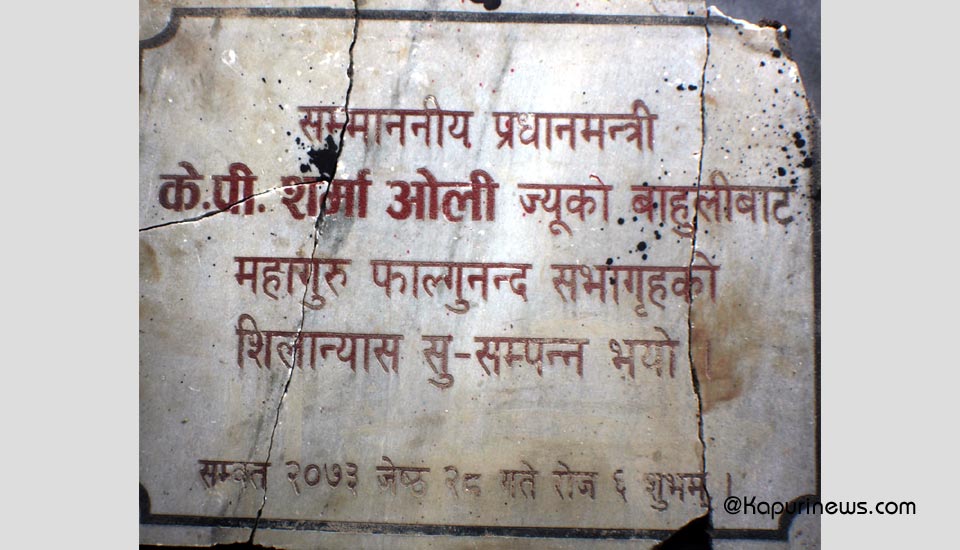 सम्माननीय प्रधानमन्त्री
के.पी. शर्मा ओली ज्यूको बाहुलीबाट
महागुरु फाल्गुनन्द सभागृहको
शिलान्यास सु-सम्पन्न भयो ।
सम्वत २०७३ जेष्ठ २८ गते रोज ६ शुभम् ।
@Kapurinews.com